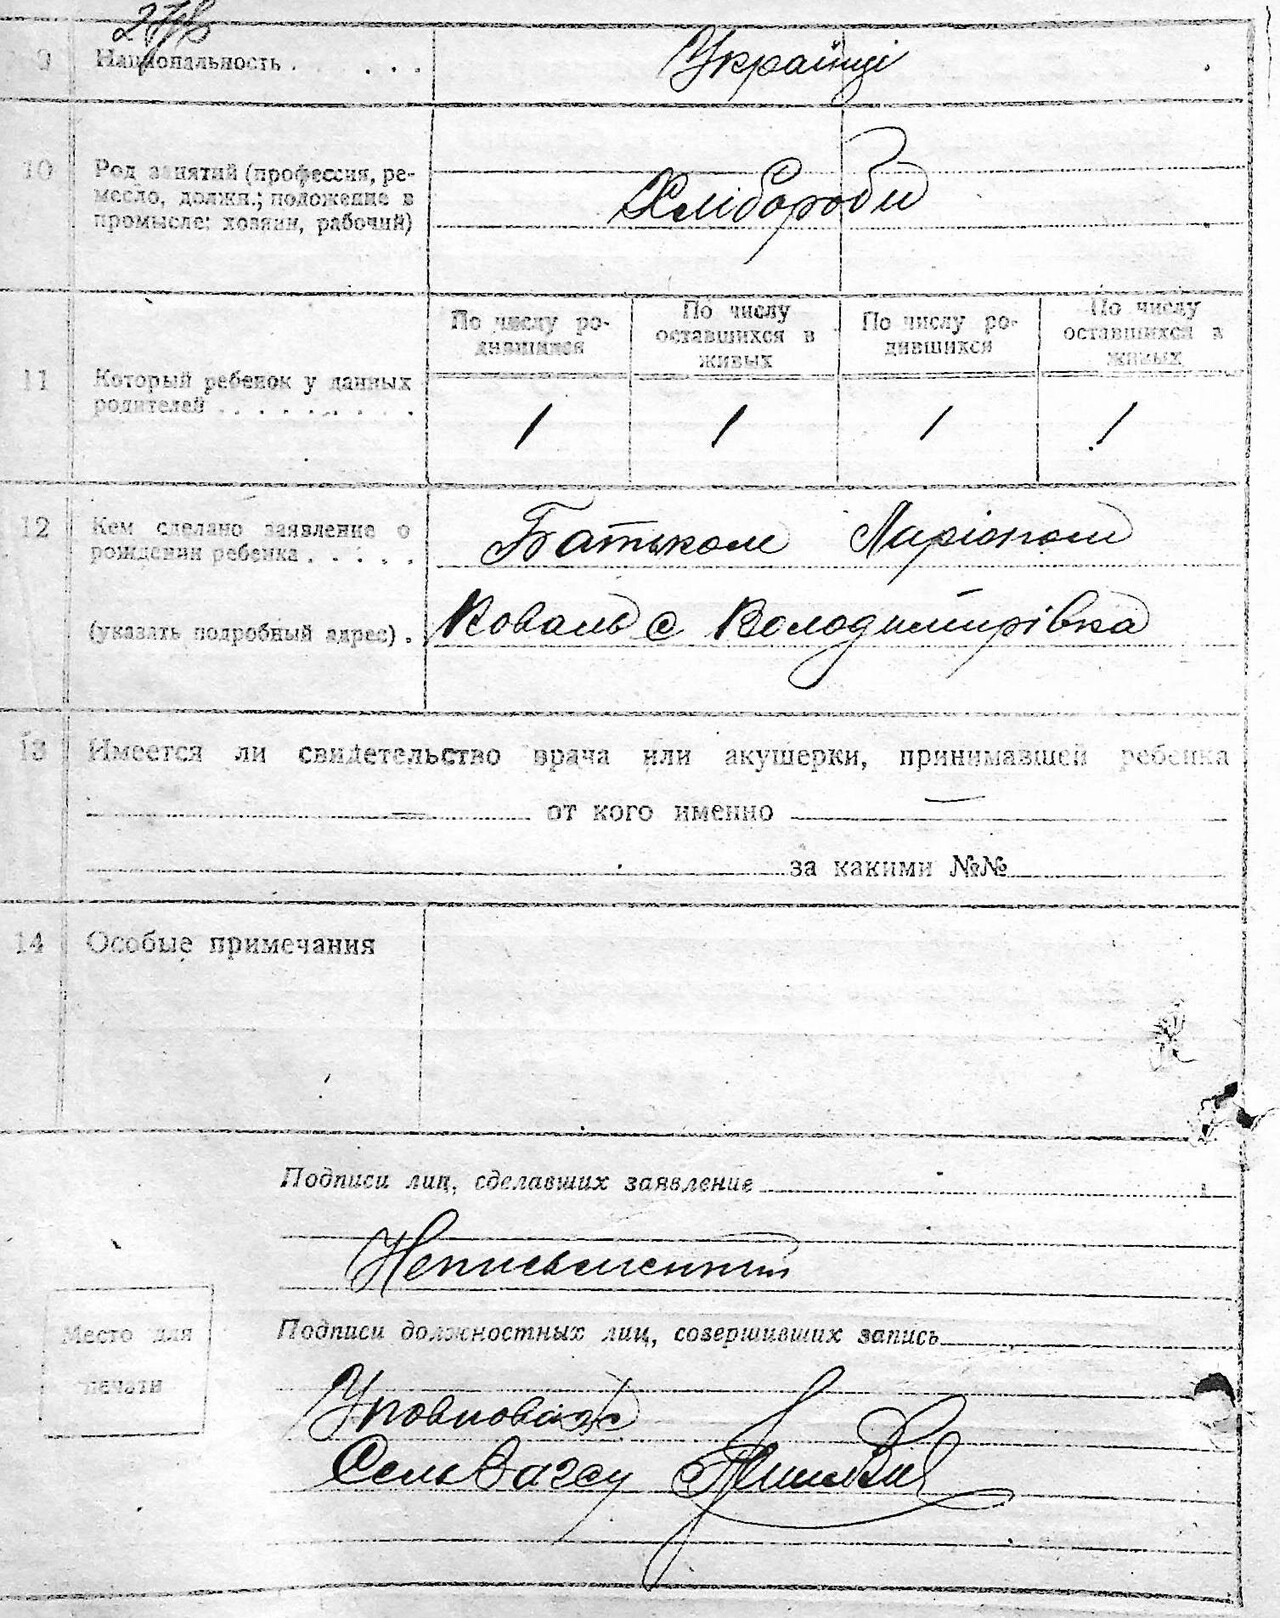 9 Национальность . . . . . Українці
10 Род занятий (профессия, ре-
месло, должн.; положение в
промысле: хозяин, рабочий)
Хлібороби
По числу ро-
дившихся
По числу
оставшихся в
живых
По числу ро-
дившихся
По числу
оставшихся в
живых
11 Который ребенок у данных
родителей . . . . . . . . .
1 1 1 1
12 Кем сделано заявление о
рождении ребенка . . . . .
Батьком Ларіоном
(указать подробный адрес) . Коваль с Володимирівка
13 Имеется ли свидетельство врача или акушерки, принимавшей ребенка
— от кого именно —
за какими №№
14 Особые примечания
Подписи лиц, сделавших заявление
Неписьменний
Место для
печати
Подписи должностных лиц, совершивших запись
Уповноваж
Сель